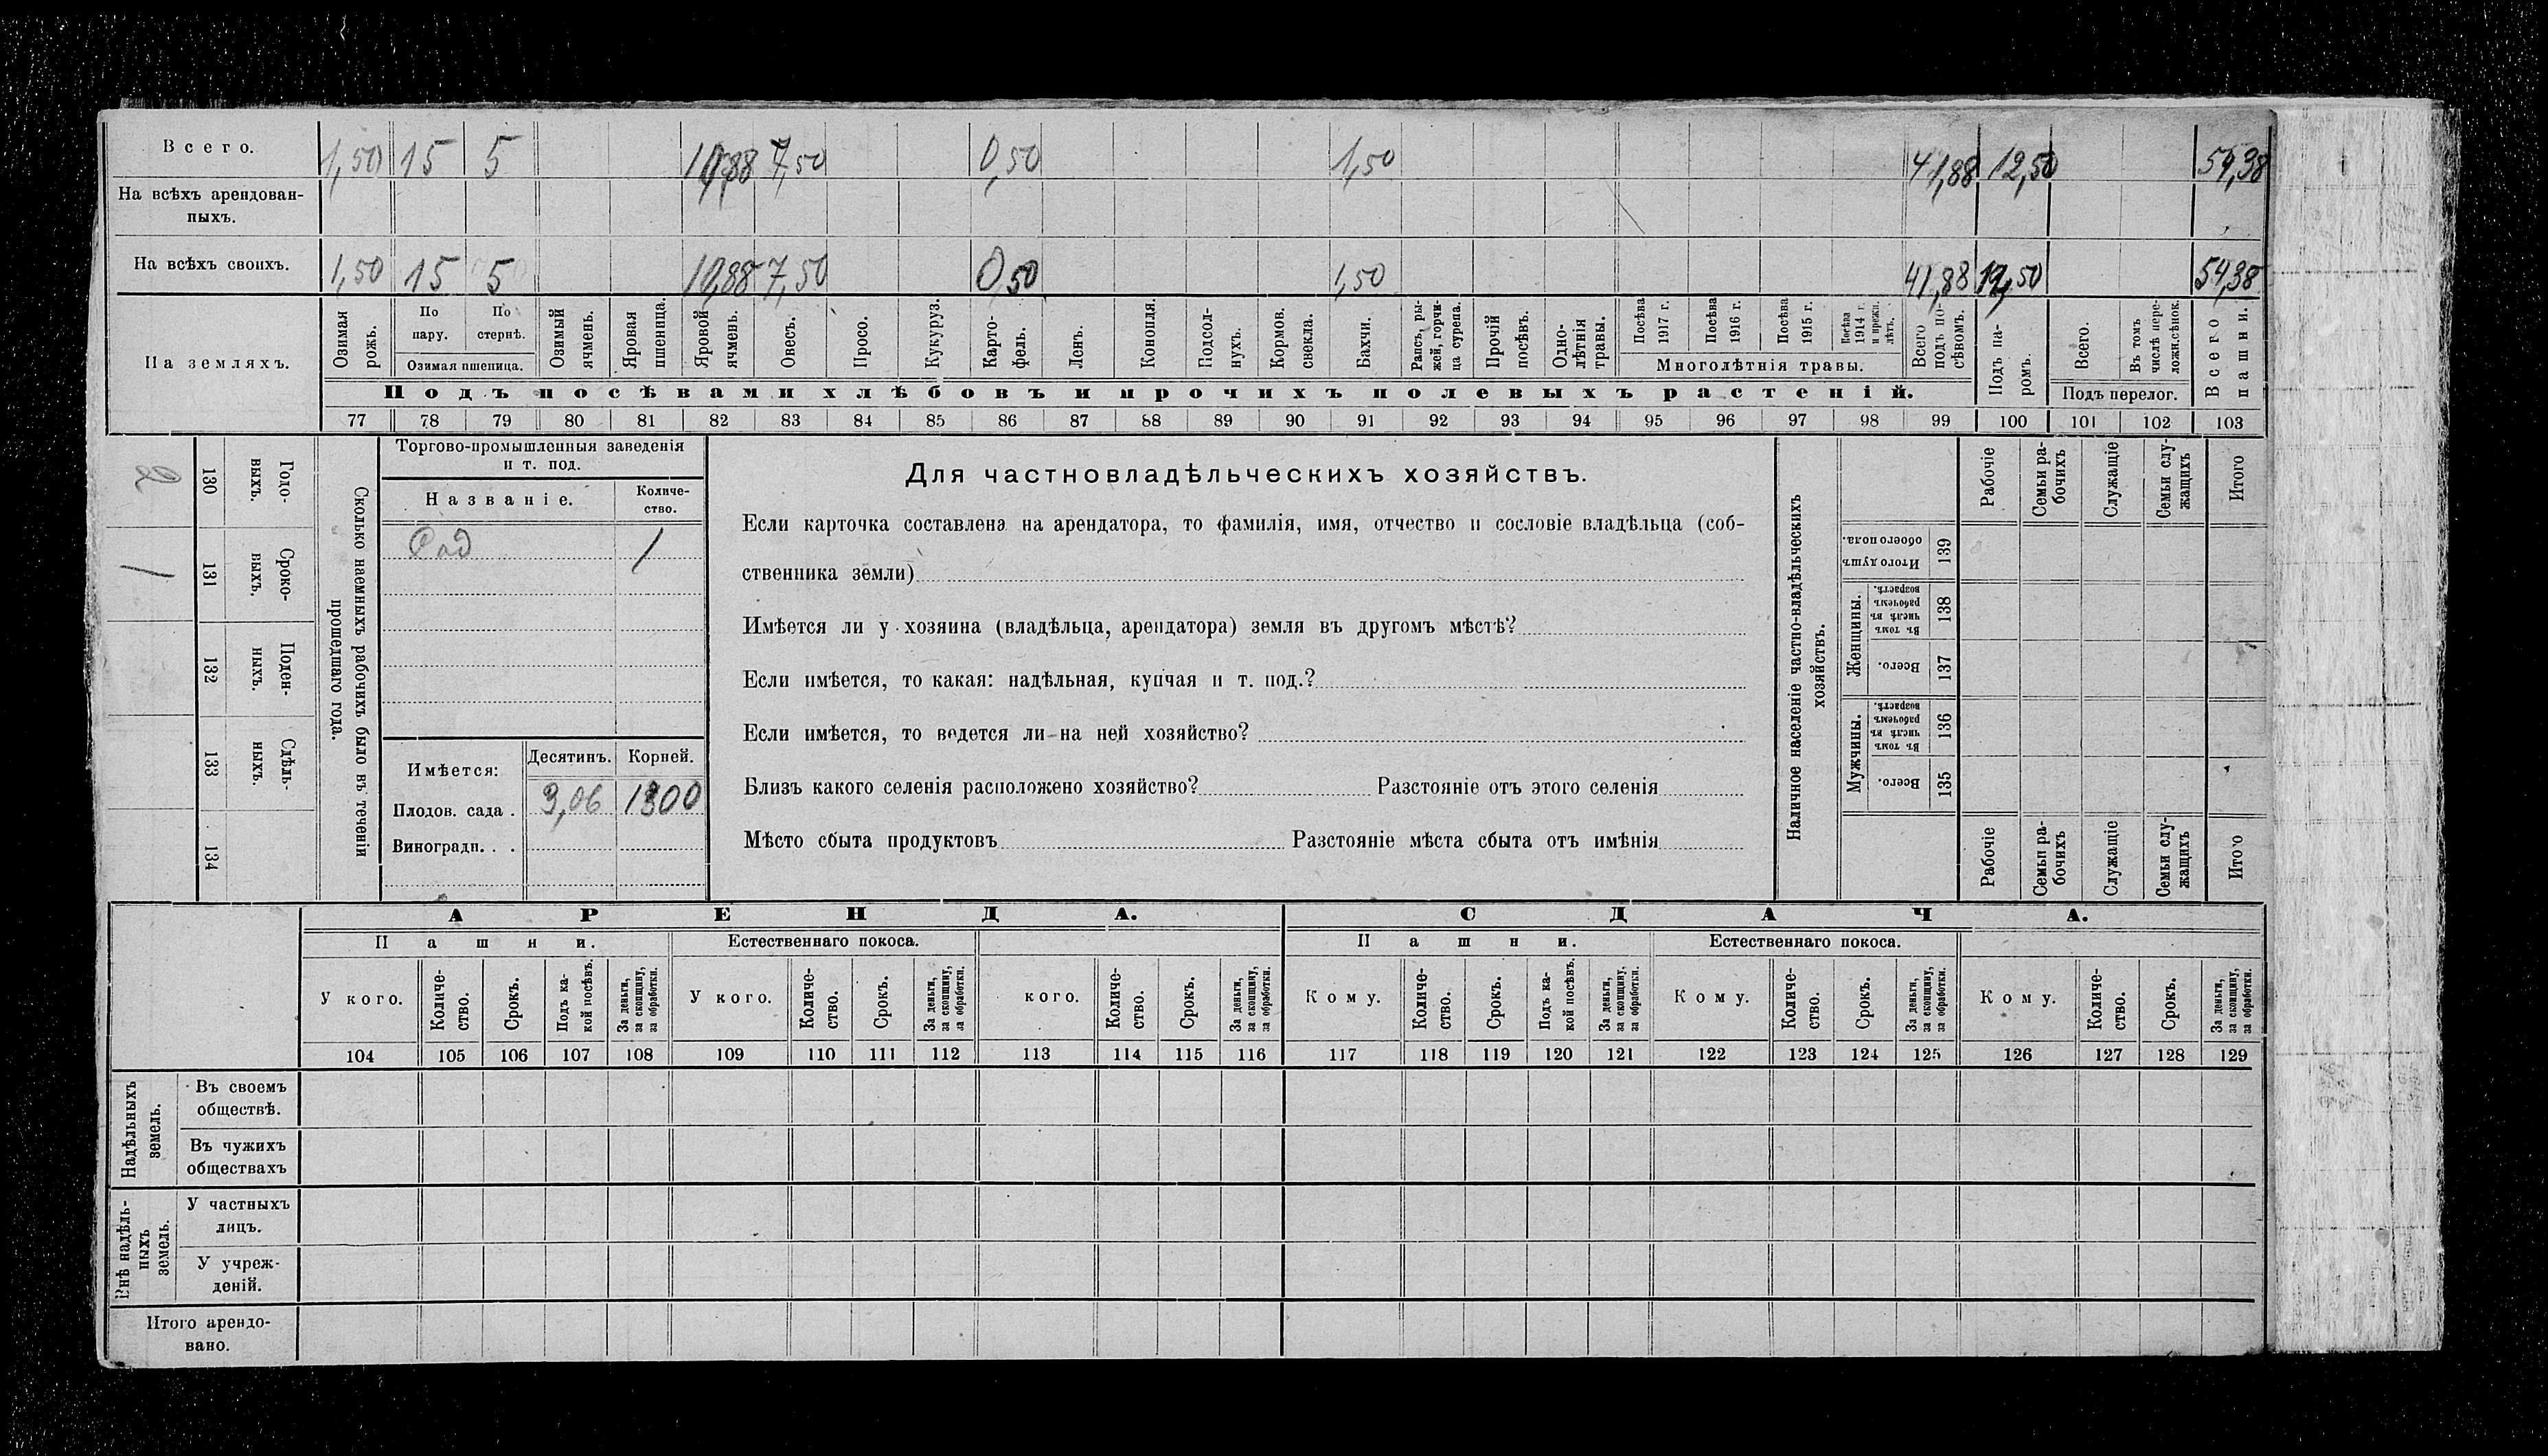 Всего. 1,50 15 5 10,88 7,50 0,50 1,50 41,88 12,50 54,38
На всѣхъ арендован-
ныхъ.
На всѣхъ своихъ. 1,50 15 5 10,88 7,50 0,50 1,50 41,88 12,50 54,38
На земляхъ.
Озимая рожь.
По пару.
По стернѣ.
Озимая пшеница.
Озимый ячмень.
Яровая пшеница.
Яровой ячмень.
Овесъ.
Просо.
Кукуруз.
Карто-
фель.
Ленъ.
Конопля.
Подсол-
нухъ.
Кормов. свекла.
Бахчи.
Рапсъ, ры-
жей, горчи-
ца сурепа.
Прочій посѣвъ.
Одно-
лѣтнія травы.
Посѣва 1917 г.
Посѣва 1916 г.
Посѣва 1915 г.
Посѣва 1914 г. и прежн. лѣтъ.
Многолѣтнія травы.
Всего подъ по-
сѣвомъ.
Подъ па-
ромъ.
Всего.
Въ томъ числѣ пере-
ложн.сѣнок.
Подъ перелог.
Всего пашни.
Подъ посѣвами хлѣбовъ и прочихъ полевыхъ растеній.
77 78 79 80 81 82 83 84 85 86 87 88 89 90 91 92 93 94 95 96 97 98 99 100 101 102 103
2
1
130 131 132 133 134
Годо-
выхъ.
Сроко-
ныхъ.
Поден-
ныхъ.
Сдѣль-
ныхъ.
Сколько наемныхъ рабочихъ было въ теченіи
прошедшаго года.
Торгово-промышленныя заведенія
и т. под.
Названіе.
Количе-
ство.
Сад 1
Имѣется: Десятинъ. Корней.
Плодов. сада . 3,06 1300
Виноградн. . .
Для частновладѣльческихъ хозяйствъ.
Если карточка составлена на арендатора, то фамилія, имя, отчество и сословіе владѣльца (соб-
ственника земли)
Имѣется ли у хозяина (владѣльца, арендатора) земля въ другомъ мѣстѣ?
Если имѣется, то какая: надѣльная, купчая и т. под.?
Если имѣется, то ведется ли на ней хозяйство?
Близъ какого селенія расположено хозяйство? Разстояніе отъ этого селенія
Мѣсто сбыта продуктовъ Разстояніе мѣста сбыта отъ имѣнія
Наличное населеніе частно-владѣльческихъ
хозяйствъ.
Рабочіе
Семьи ра-
бочихъ
Служащіе
Семьи слу-
жащихъ
Итого
Итого душъ обоего пола. 139
Женщины.
Въ томъ числѣ въ рабочемъ возрастѣ. 138
Всего. 137
Мужчины.
Въ томъ числѣ въ рабочемъ возрастѣ. 136
Всего. 135
Рабочіе
Семьи ра-
бочихъ
Служащіе
Семьи слу-
жащихъ
Итого
АРЕНДА. СДАЧА.
Пашни. Естественнаго покоса. Пашни. Естественнаго покоса.
У кого.
Количе-
ство.
Срокъ.
Подъ ка-
кой посѣвъ.
За деньги, за скопщину, за обработки.
У кого.
Количе-
ство.
Срокъ.
За деньги, за скопщину, за обработки.
кого.
Количе-
ство.
Срокъ.
За деньги, за скопщину, за обработки.
Кому.
Количе-
ство.
Срокъ.
Подъ ка-
кой посѣвъ.
За деньги, за скопщину, за обработки.
Кому.
Количе-
ство.
Срокъ.
За деньги, за скопщину, за обработки.
Кому.
Количе-
ство.
Срокъ.
За деньги, за скопщину, за обработки.
104 105 106 107 108 109 110 111 112 113 114 115 116 117 118 119 120 121 122 123 124 125 126 127 128 129
Надѣльныхъ
земель.
Въ своемъ
обществѣ.
Въ чужихъ
обществахъ
Внѣ надѣль-
ныхъ
земель.
У частныхъ
лицъ.
У учреж-
деній.
Итого арендо-
вано.